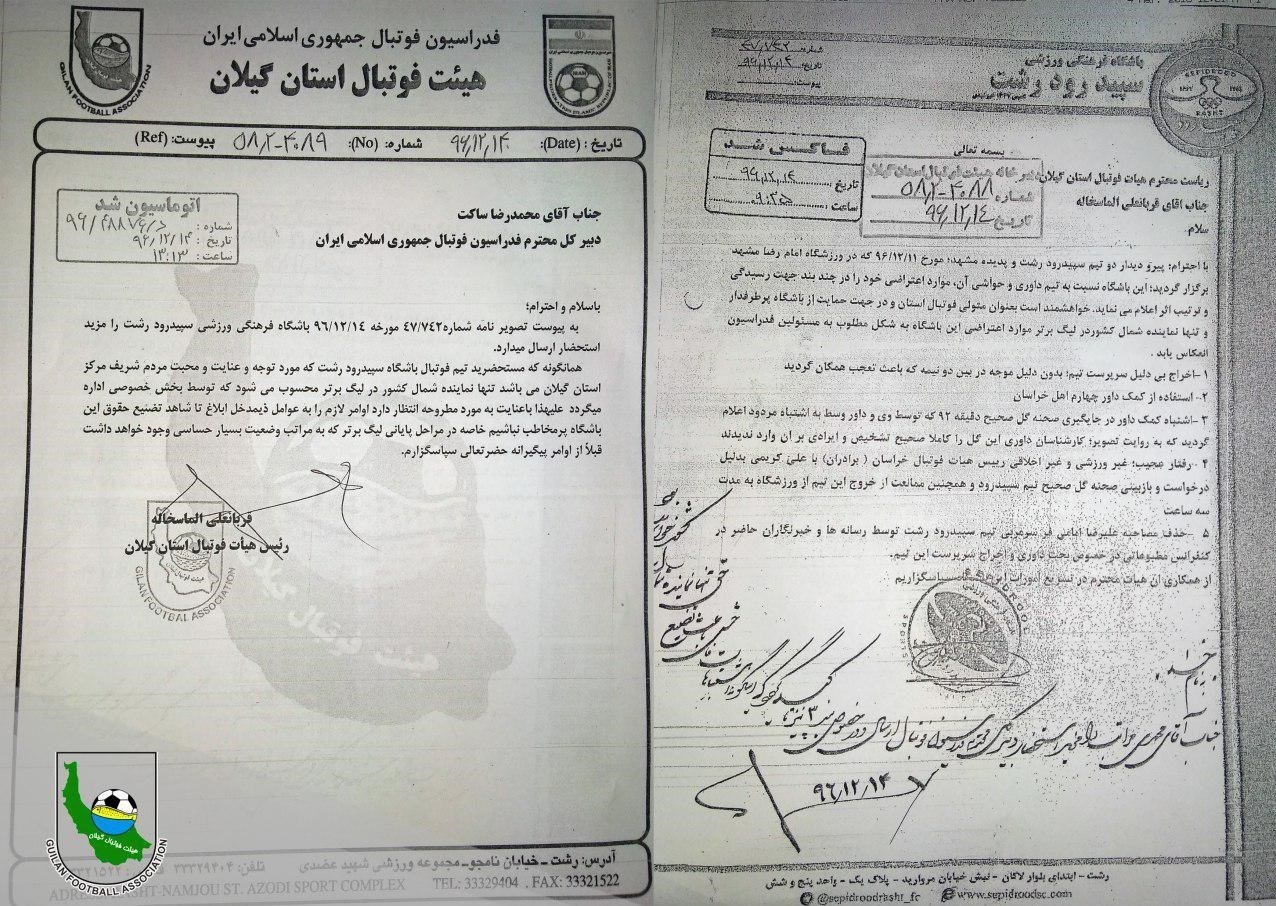 فدراسیون فوتبال جمهوری اسلامی ایران
هیئت فوتبال استان گیلان
GILAN FOOTBALL ASSOCIATION
تاریخ : (Date): ۹۶/۱۲/۱۴ شماره: (No): ۵۸۲-۴۰۸۹ پیوست: (Ref)
اتوماسیون شد
شماره :
تاریخ : ۹۶/۱۲/۱۴
ساعت : ۱۳:۱۳
جناب آقای محمدرضا ساکت
دبیر کل محترم فدراسیون فوتبال جمهوری اسلامی ایران
باسلام و احترام؛
به پیوست تصویر نامه شماره۴۷/۷۴۲ مورخه ۹۶/۱۲/۱۴ باشگاه فرهنگی ورزشی سپیدرود رشت را مزید
استحضار ارسال میدارد.
همانگونه که مستحضرید تیم فوتبال باشگاه سپیدرود رشت که مورد توجه و عنایت و محبت مردم شریف مرکز
استان گیلان می باشد تنها نماینده شمال کشور در لیگ برتر محسوب می شود که توسط بخش خصوصی اداره
میگردد علیهذا باعنایت به مورد مطروحه انتظار دارد اوامر لازم را به عوامل ذیمدخل ابلاغ تا شاهد تضنیع حقوق این
باشگاه پرمخاطب نباشیم خاصه در مراحل پایانی لیگ برتر که به مراتب وضعیت بسیار حساسی وجود خواهد داشت
قبلاً از اوامر پیگیرانه حضرتعالی سپاسگزارم.
قربانعلی الماسخاله
رئیس هیأت فوتبال استان گیلان
GILAN FOOTBAL ASSOCIATION
هیئت فوتبال گیلان
آدرس: رشت - خیابان نامجو- مجموعه ورزشی شهید عضدی تلفن: ۳۳۳۲۹۴۰۴
RASHT-NAMJOU ST. AZODI SPORT COMPLEX TEL: 33329404 . FAX: 33321522
هیات فوتبال گیلان
GUILAN FOOTBALL ASSOCIATION
باشگاه فرهنگی ورزشی
سپید رود رشت
SEPIDROOD
RASHT
شماره: ۴۷/۷۴۲
تاریخ: ۹۶/۱۲/۱۴
پیوست:
بسمه تعالی
فاکس شد
تاریخ ۹۶/۱۲/۱۴
ساعت ۰۹:۳۵
دبیرخانه هیئت فوتبال استان گیلان
شماره ۵۸۲-۴۰۸۸
تاریخ ۹۶/۱۲/۱۴
ریاست محترم هیات فوتبال استان گیلان
جناب آقای قربانعلی الماسخاله
سلام
با احترام؛ پیرو دیدار دو تیم سپیدرود رشت و پدیده مشهد؛ مورخ ۹۶/۱۲/۱۱ که در ورزشگاه امام رضا مشهد
برگزار گردید؛ این باشگاه نسبت به تیم داوری و حواشی آن، موارد اعتراضی خود را در چند بند جهت رسیدگی
و ترتیب اثر اعلام می نماید. خواهشمند است بعنوان متولی فوتبال استان و در جهت حمایت از باشگاه پرطرفدار
و تنها نماینده شمال کشوردر لیگ برتر موارد اعتراضی این باشگاه به شکل مطلوب به مسئولین فدراسیون
انعکاس یابد .
۱-اخراج بی دلیل سرپرست تیم؛ بدون دلیل موجه در بین دو نیمه که باعث تعجب همگان گردید
۲- استفاده از کمک داور چهارم اهل خراسان
۳-اشتباه کمک داور در جایگیری صحنه گل صحیح دقیقه ۹۲ که توسط وی و داور وسط به اشتباه مردود اعلام
گردید که به روایت تصویر؛ کارشناسان داوری این گل را کاملا صحیح تشخیص و ایرادی بر ان وارد ندیدند
۴ -رفتار عجیب؛ غیر ورزشی و غیر اخلاقی رییس هیات فوتبال خراسان ( برادران) با علی کریمی بدلیل
درخواست و بازبینی صحنه گل صحیح تیم سپیدرود و همچنین ممانعت از خروج این تیم از ورزشگاه به مدت
سه ساعت
۵ -حذف مصاحبه علیرضا امامی فر سرمربی تیم سپیدرود رشت توسط رسانه ها و خبرنگاران حاضر در
کنفرانس مطبوعاتی در خصوص بحث داوری و اخراج سرپرست این تیم.
از همکاری ان هیات محترم در تسریع امورات سپاسگزاریم
۹۶/۱۲/۱۴
رشت - ابتدای بلوار لاکان - نبش خیابان مروارید - پلاک یک - واحد پنج و شش
@sepidroodrasht_fc www.sepidroodsc.com